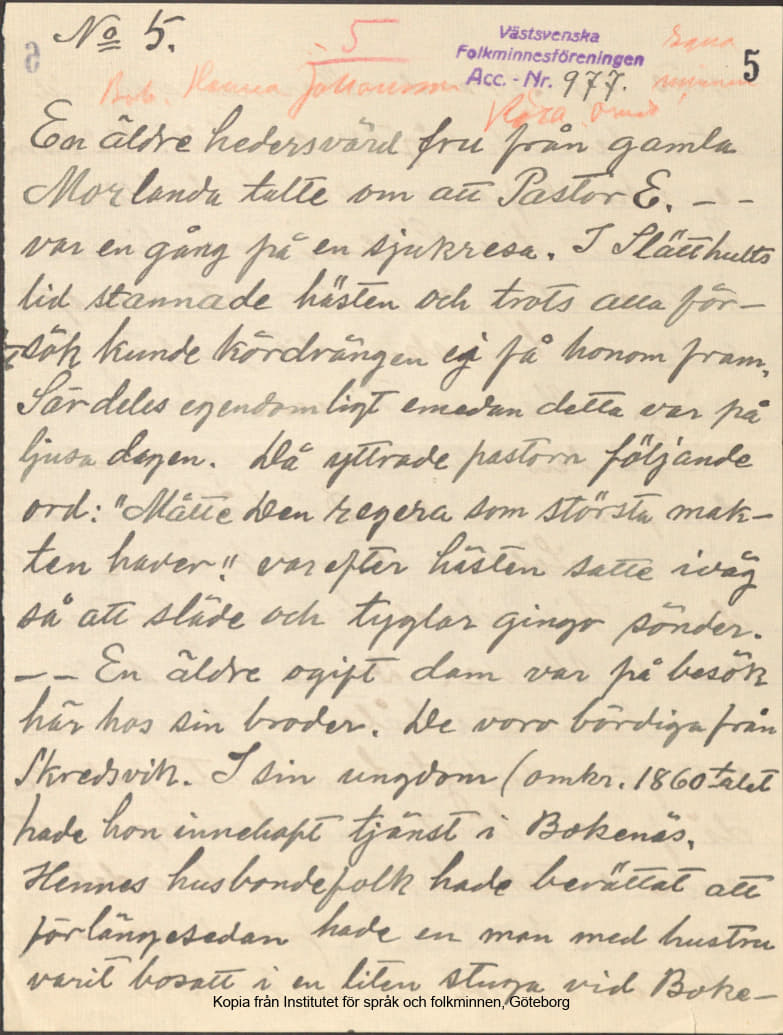 No 5.
5
Västsvenska
Folkminnesföreningen
Acc. - Nr. 977.
5
Egna
minnen
Boh. Hanna Johansson
Röra, Orust
En äldre hedersvärd fru från gamla
Morlanda talte om att Pastor E. – –
var en gång på en sjukresa. I Slätthults
lid stannade hästen och trots alla för-
sök kunde kördrängen ej få honom fram,
Särdeles egendomligt emedan detta var på
ljusa dagen. Då yttrade pastorn följande
ord: "Måtte Den regera som största mak-
ten haver". varefter hästen satte iväg
så att släde och tyglar gingo sönder.
– – En äldre ogift dam var på besök
här hos sin broder. De voro bördiga från
Skredsvik. I sin ungdom (omkr. 1860 talet
hade hon innehaft tjänst i Bokenäs.
Hennes husbondefolk hade berättat att
förlängesedan hade en man med hustru
varit bosatt i en liten stuga vid Boke-
Kopia från Institutet för språk och folkminnen, Göteborg